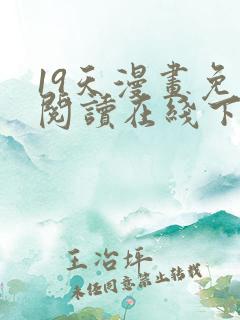 19天漫畫免
閱讀在线下
王冶坪
未经同意禁止转载